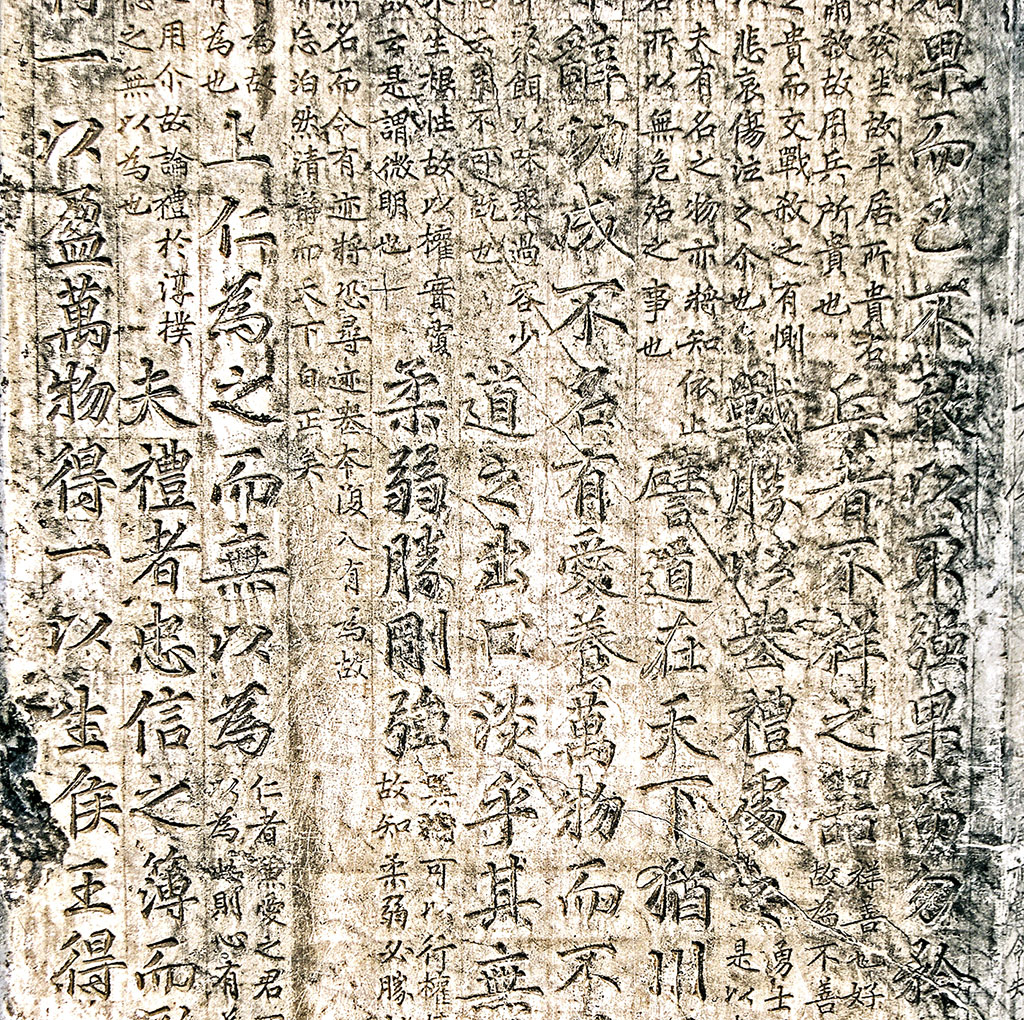 者果而已不敢以取強果而勿矜
發生故平居所貴右
肅殺故用兵所貴也
兵者不祥之器
祥善也好
故為不善
之貴而交戰殺之有惻
悲哀傷泣之介也
戰勝以喪禮處之
勇士
是以
夫有名之物亦將知依止
名所以無危殆之事也
譬道在天下猶川
辭功成不名有愛養萬物而不
樂餌以聚過客少
用不可既也
道之出口淡乎其無
生根性故以權實覆
故云是謂微明也
柔弱勝剛強
巽弱可以行權
故知柔弱必勝
無名而令有迹將恐尋迹喪本復入有為故
忘泊然清靜而天下自正矣
為故
為也
上仁為之而無以為
仁者兼愛之君
以為此則心有為
用介故論禮於淳樸
之無以為也
夫禮者忠信之薄而
一以盈萬物得一以生侯王得